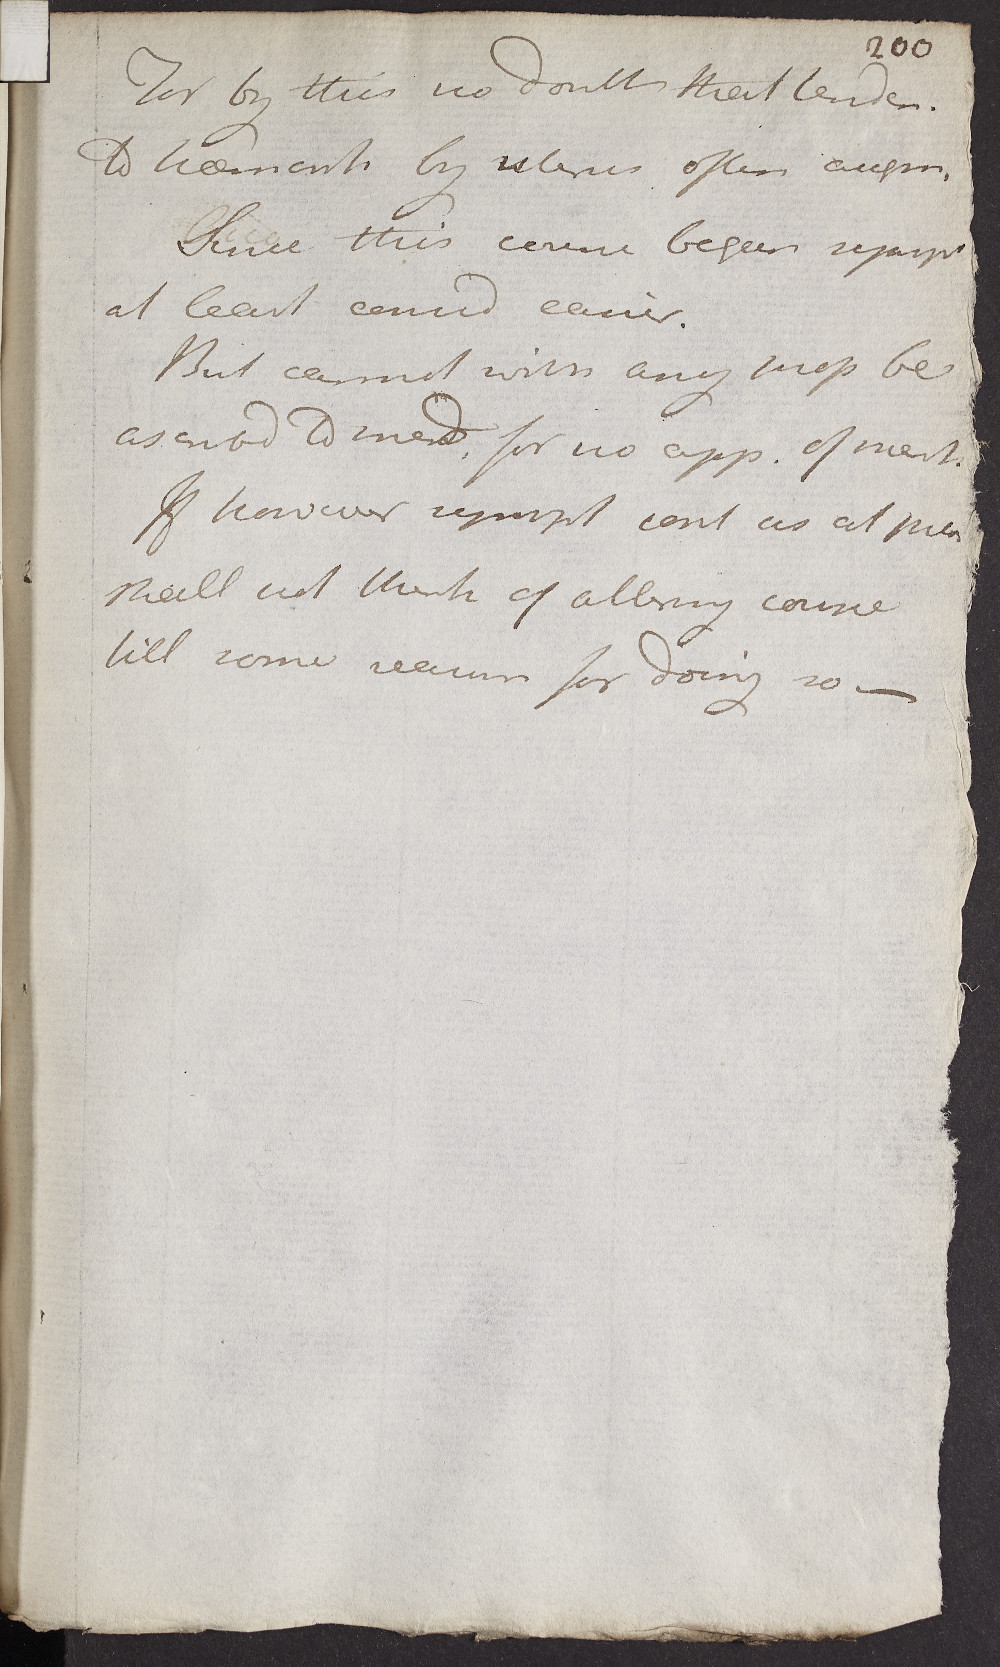 200
For by this no doubt that tenden.
to hæmorrh by uterus often augm.
Since this course began sympt
at least consid easier.
But cannot with any prop be
ascribd to med, for no app. of merh.
If however sympt cont as at pres
shall not think of altering course
till some reason for doing so —